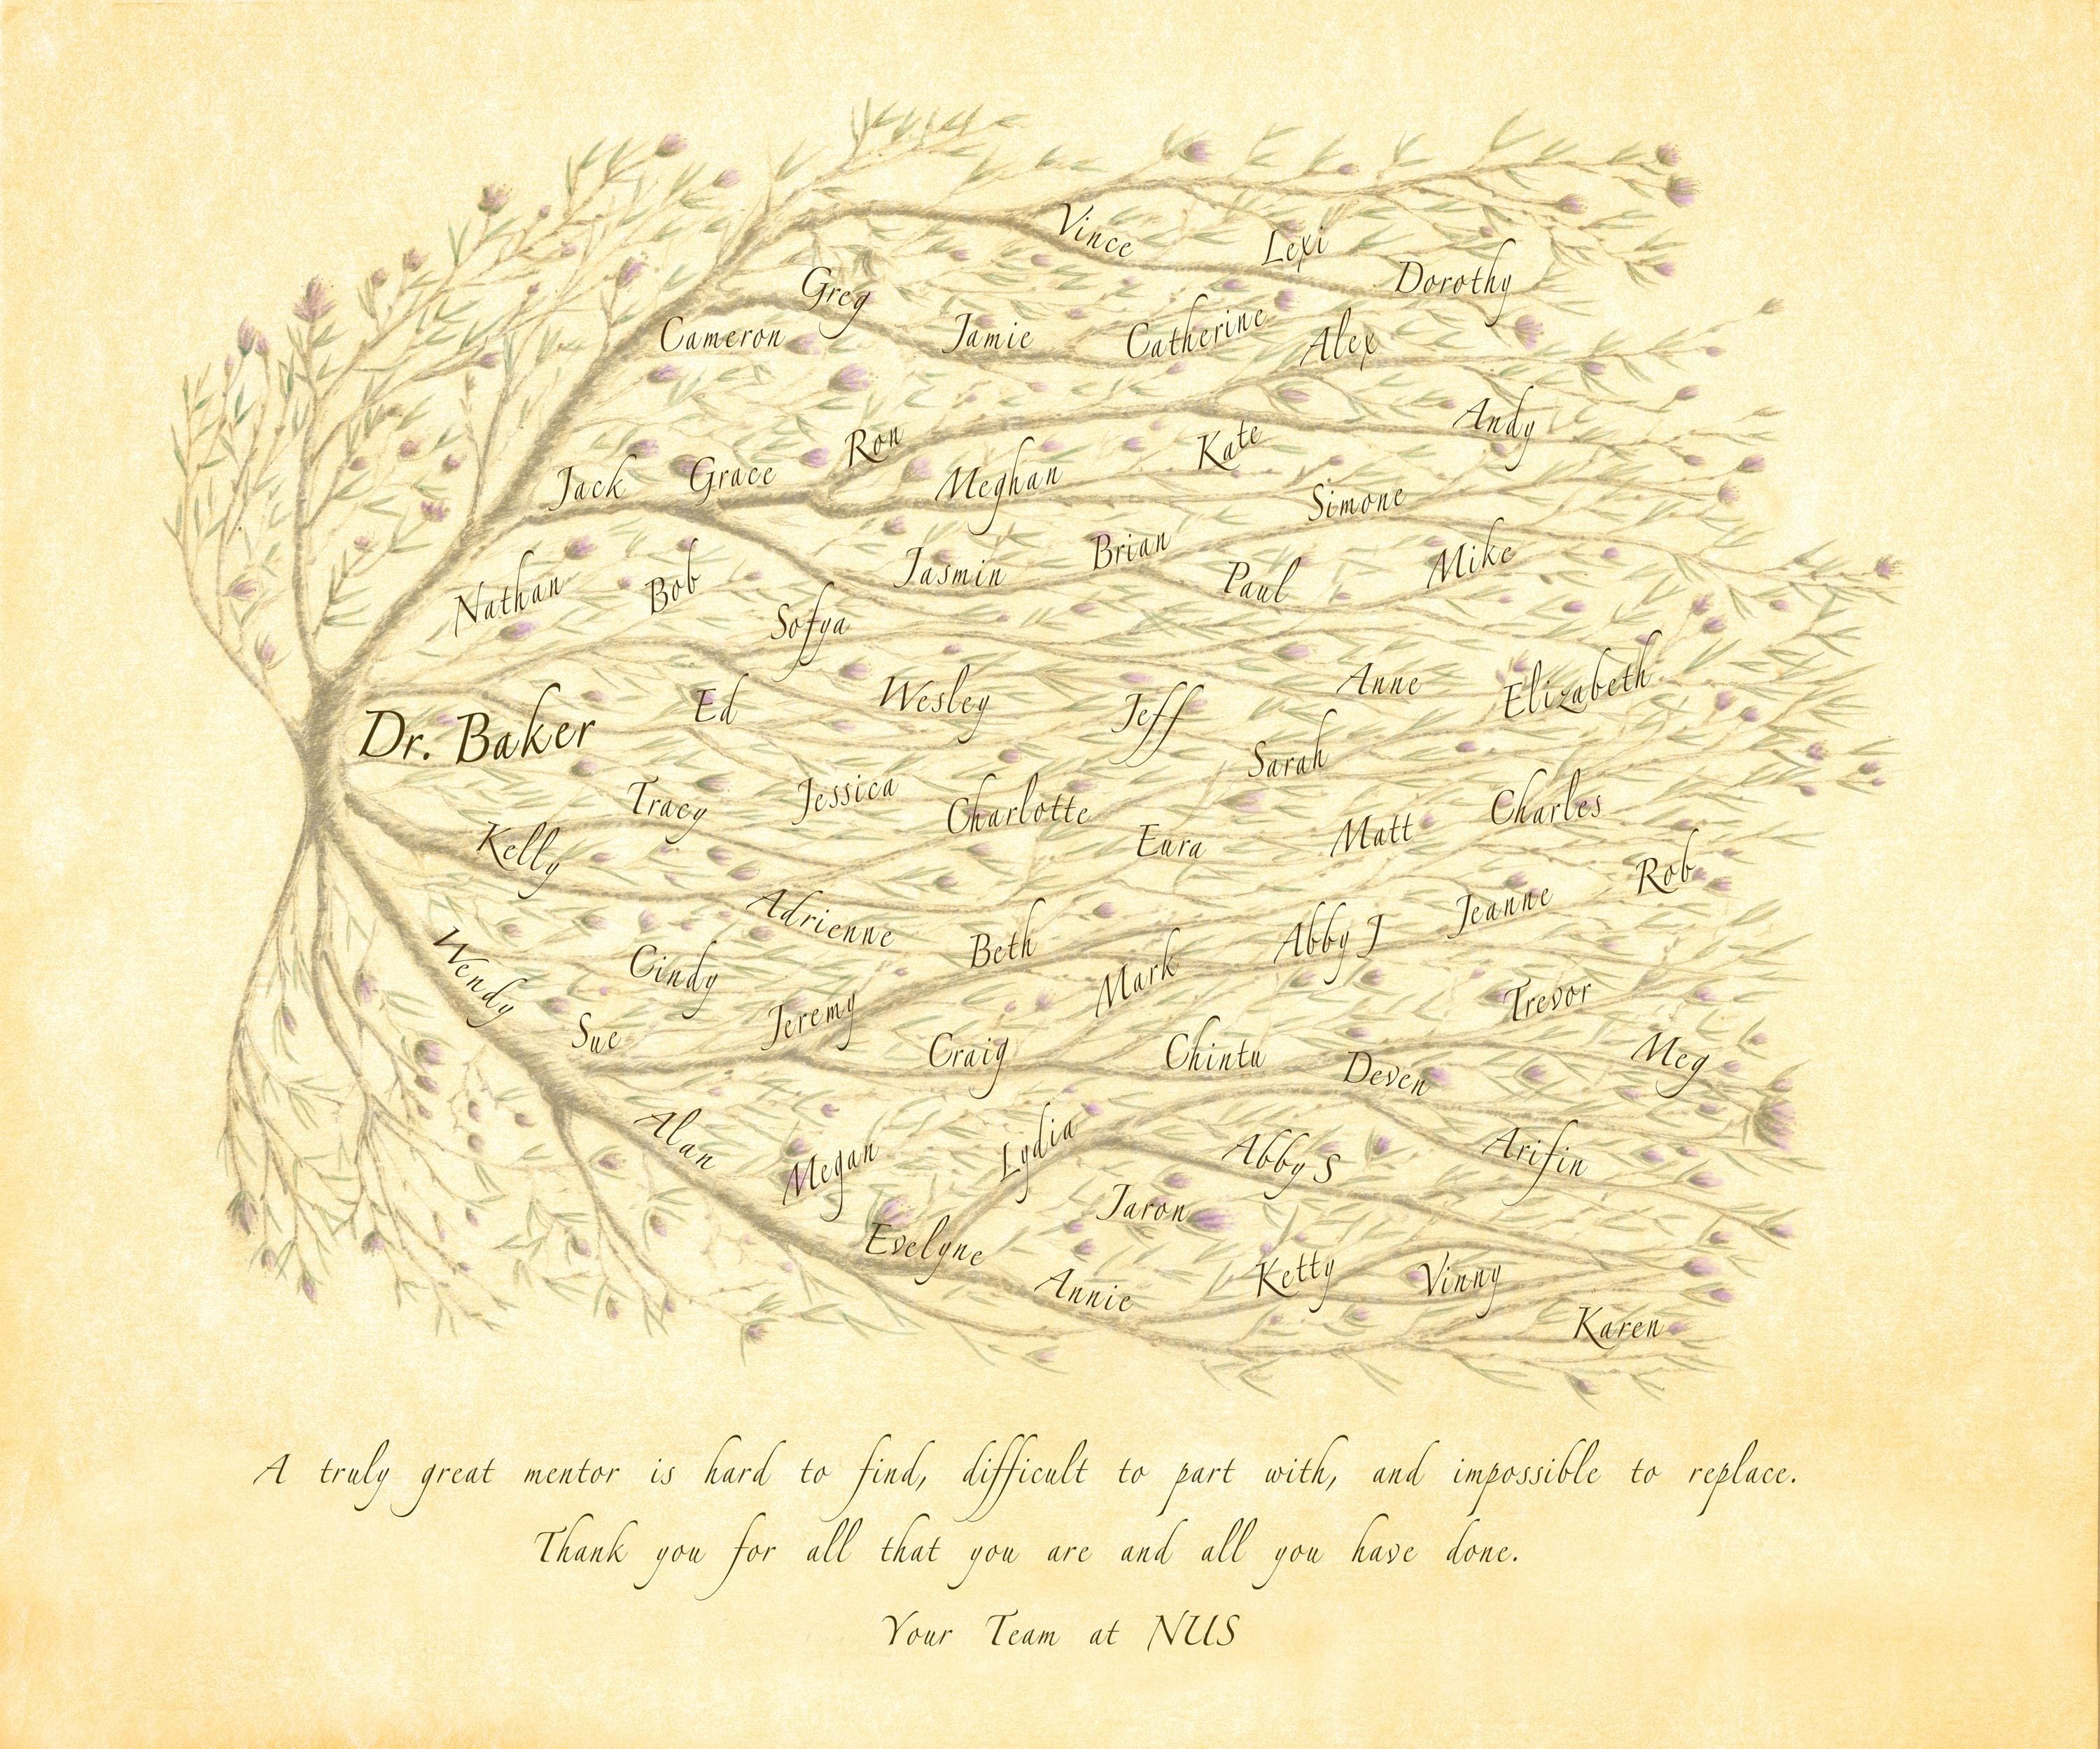 Vince
Lexi
Dorothy
Greg
Cameron
Jamie
Catherine
Alex
Andy
Ron
Kate
Jack
Grace
Meghan
Simone
Nathan
Bob
Jasmin
Brian
Paul
Mike
Sofya
Anne
Elizabeth
Ed
Wesley
Jeff
Dr. Baker
Sarah
Tracy
Jessica
Charlotte
Charles
Kelly
Eura
Matt
Rob
Adrienne
Beth
Abby J
Jeanne
Wendy
Cindy
Mark
Trevor
Sue
Jeremy
Craig
Chintu
Deven
Meg
Alan
Megan
Lydia
Abby S
Arifin
Jaron
Evelyne
Annie
Ketty
Vinny
Karen
A truly great mentor is hard to find, difficult to part with, and impossible to replace.
Thank you for all that you are and all you have done.
Your Team at NUS